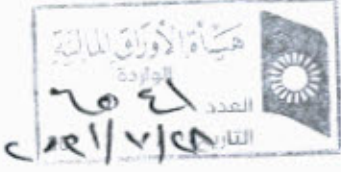 هيئة الأوراق المالية
الواردة
العدد ٦٥٤١
التاريخ ٢٠٢١/٧/٢٨